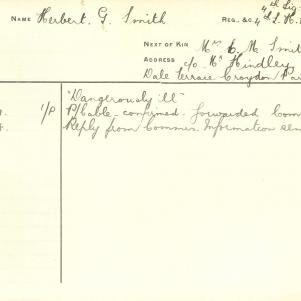 NAME Herbert. G. Smith
REG. &C. 4th L. H.
NEXT OF KIN Mrs C. M. Smit
ADDRESS c/o Mrs Hindley
Dale Terrace Croydon Par
"Dangerously ill"
1/P P/Cable confirmed. forwarded Com
Reply from Commrs. Information sen